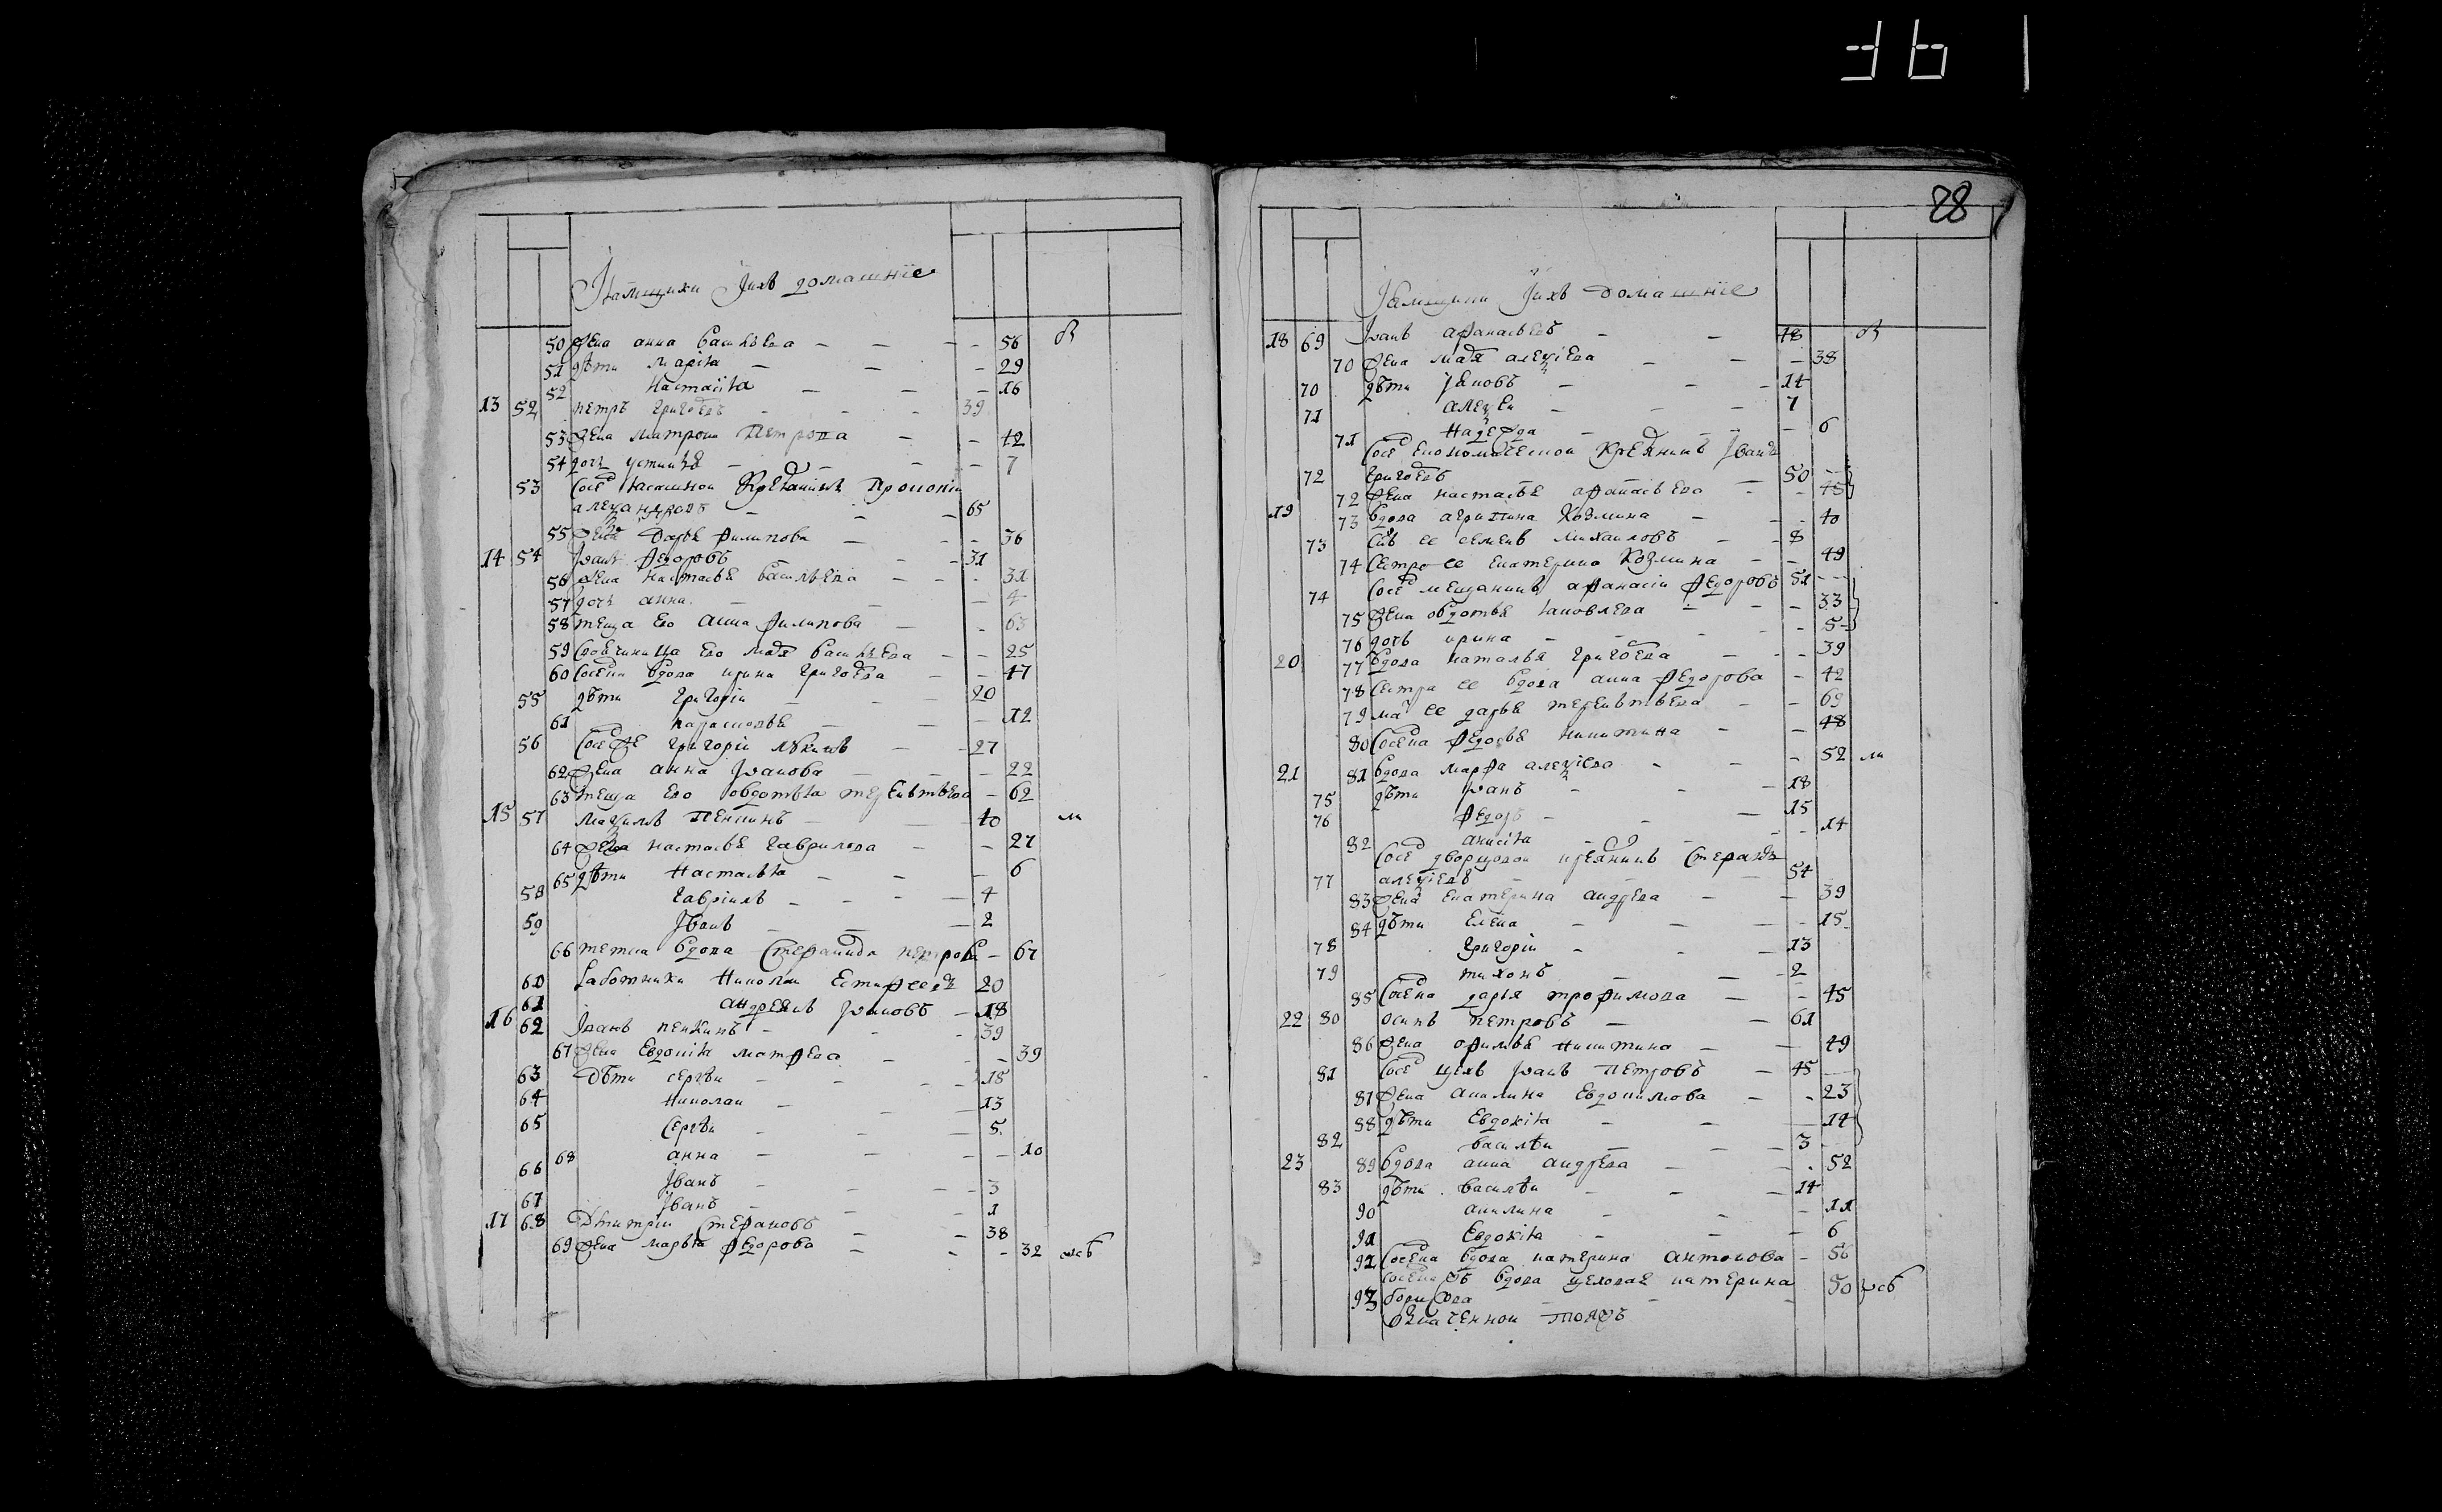 Ямщики Iихъ домашнїе
50 Жена анна василъева 56 в
51 дѣти Марїя 29
52 настасїя 16
13 52 петръ григоевъ 39
53 Жена матрона Петрова 42
54 дочь устинья 7
53 Сосед ясашной Креянинъ Прокопiи
александровъ 65
55 Жена Дарья филипова 36
14 54 Iванъ Федоровъ 31
56 жена настасья василъева 31
57 дочь анна 4
58 теща ево Анна филипова 63
59 Свояченица ево мая василъева 25
60 Соседка вдова ирина григоева 47
55 дѣти григорiи 20
61 парасковья 12
56 Сосе же григорiи лукинъ 27
62 Жена анна Iванова 22
63 теща ево овдотья терентьева 62
15 57 Мазимъ Пенкинъ 40 м
64 жена настасья гаврилова 27
65 дѣти Настасья 6
58 гаврiилъ 4
59 Iванъ 2
66 тетка вдова Степанида петрова 67
60 работники Николаи Естифеевъ 20
61 андреянъ Iвановъ 18
16 62 Iванъ пенкинъ 39
67 Жена Евдокiя матфева 39
63 Дѣти сергѣи 15
64 Николаи 13
65 Сергѣи 5
68 анна 10
66 Iванъ 3
67 Iванъ 1
17 68 Дмитрiи Стефановъ 38
69 Жена марья федорова 32
28
Ямщики Iихъ домашнїе
18 69 Iванъ афанасьевъ 48 в
70 Жена мая алезiева 38
70 дѣти Яковъ 14
71 алезеи 7
71 надежда 6
Сосе економической Креянинъ Iванъ
72 григоевъ 50
72 Жена настасья афанасьева 45
19 73 вдова агрипина Козмина 40
73 Сынъ ее семенъ михаиловъ 8
74 Сестра ее екатерина Козмина 49
74 Сосе мещанинъ афанасiи федоровъ 51
75 Жена овдотья яковлева 33
76 дочь ирина 5
20 77 вдова наталья григоева 39
78 Сестра ее вдова анна федорова 42
79 ма ее дарья терентьева 69
80 Соседка федосья никитина 48
21 81 вдова марфа алезiева 52 м
75 дѣти Iванъ 18
76 федоръ 15
82 анисiя 14
Сосе дворцовои креянинъ Стефанъ
77 алезiевъ 54
83 Жена екатерина андрева 39
84 дѣти Елена 15
78 григорiи 13
79 тихонъ 2
85 Соседка дарья трофимова 45
22 80 осипъ петровъ 61
86 Жена офимья никитина 49
81 Сосе цехъ Iванъ Петровъ 45
81 Жена акилина Евдокимова 23
88 дѣти Евдокiя 14
82 василѣи 3
23 89 вдова анна андрева 52
83 дѣти василѣи 14
90 акилина 11
91 Евдокiя 6
92 Соседка вдова катерина антонова 50
Соседка вдова цеховая катерина
93 борисова 50